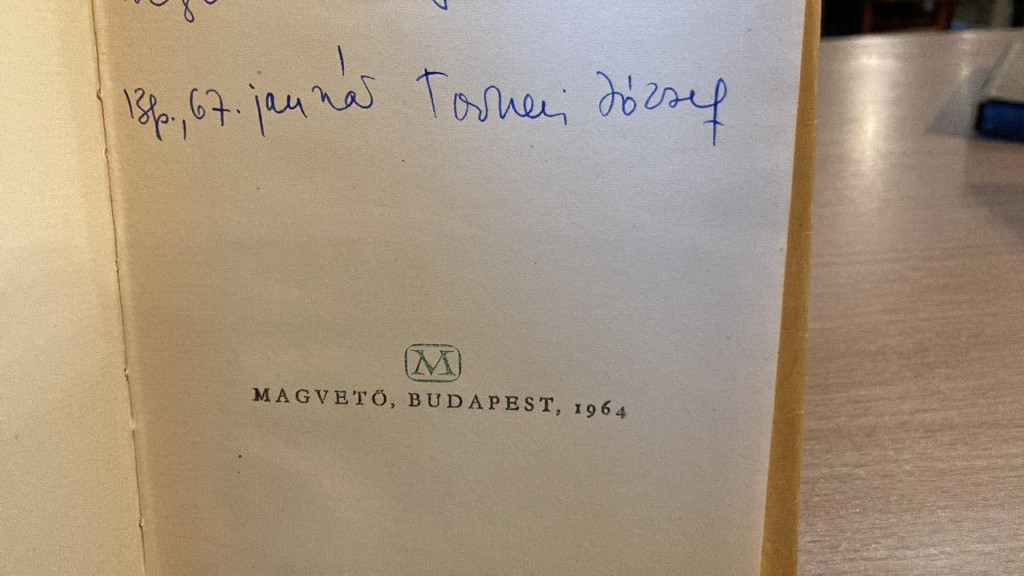 Bp., 67. január Tornai József
M
MAGVETŐ, BUDAPEST, 1964